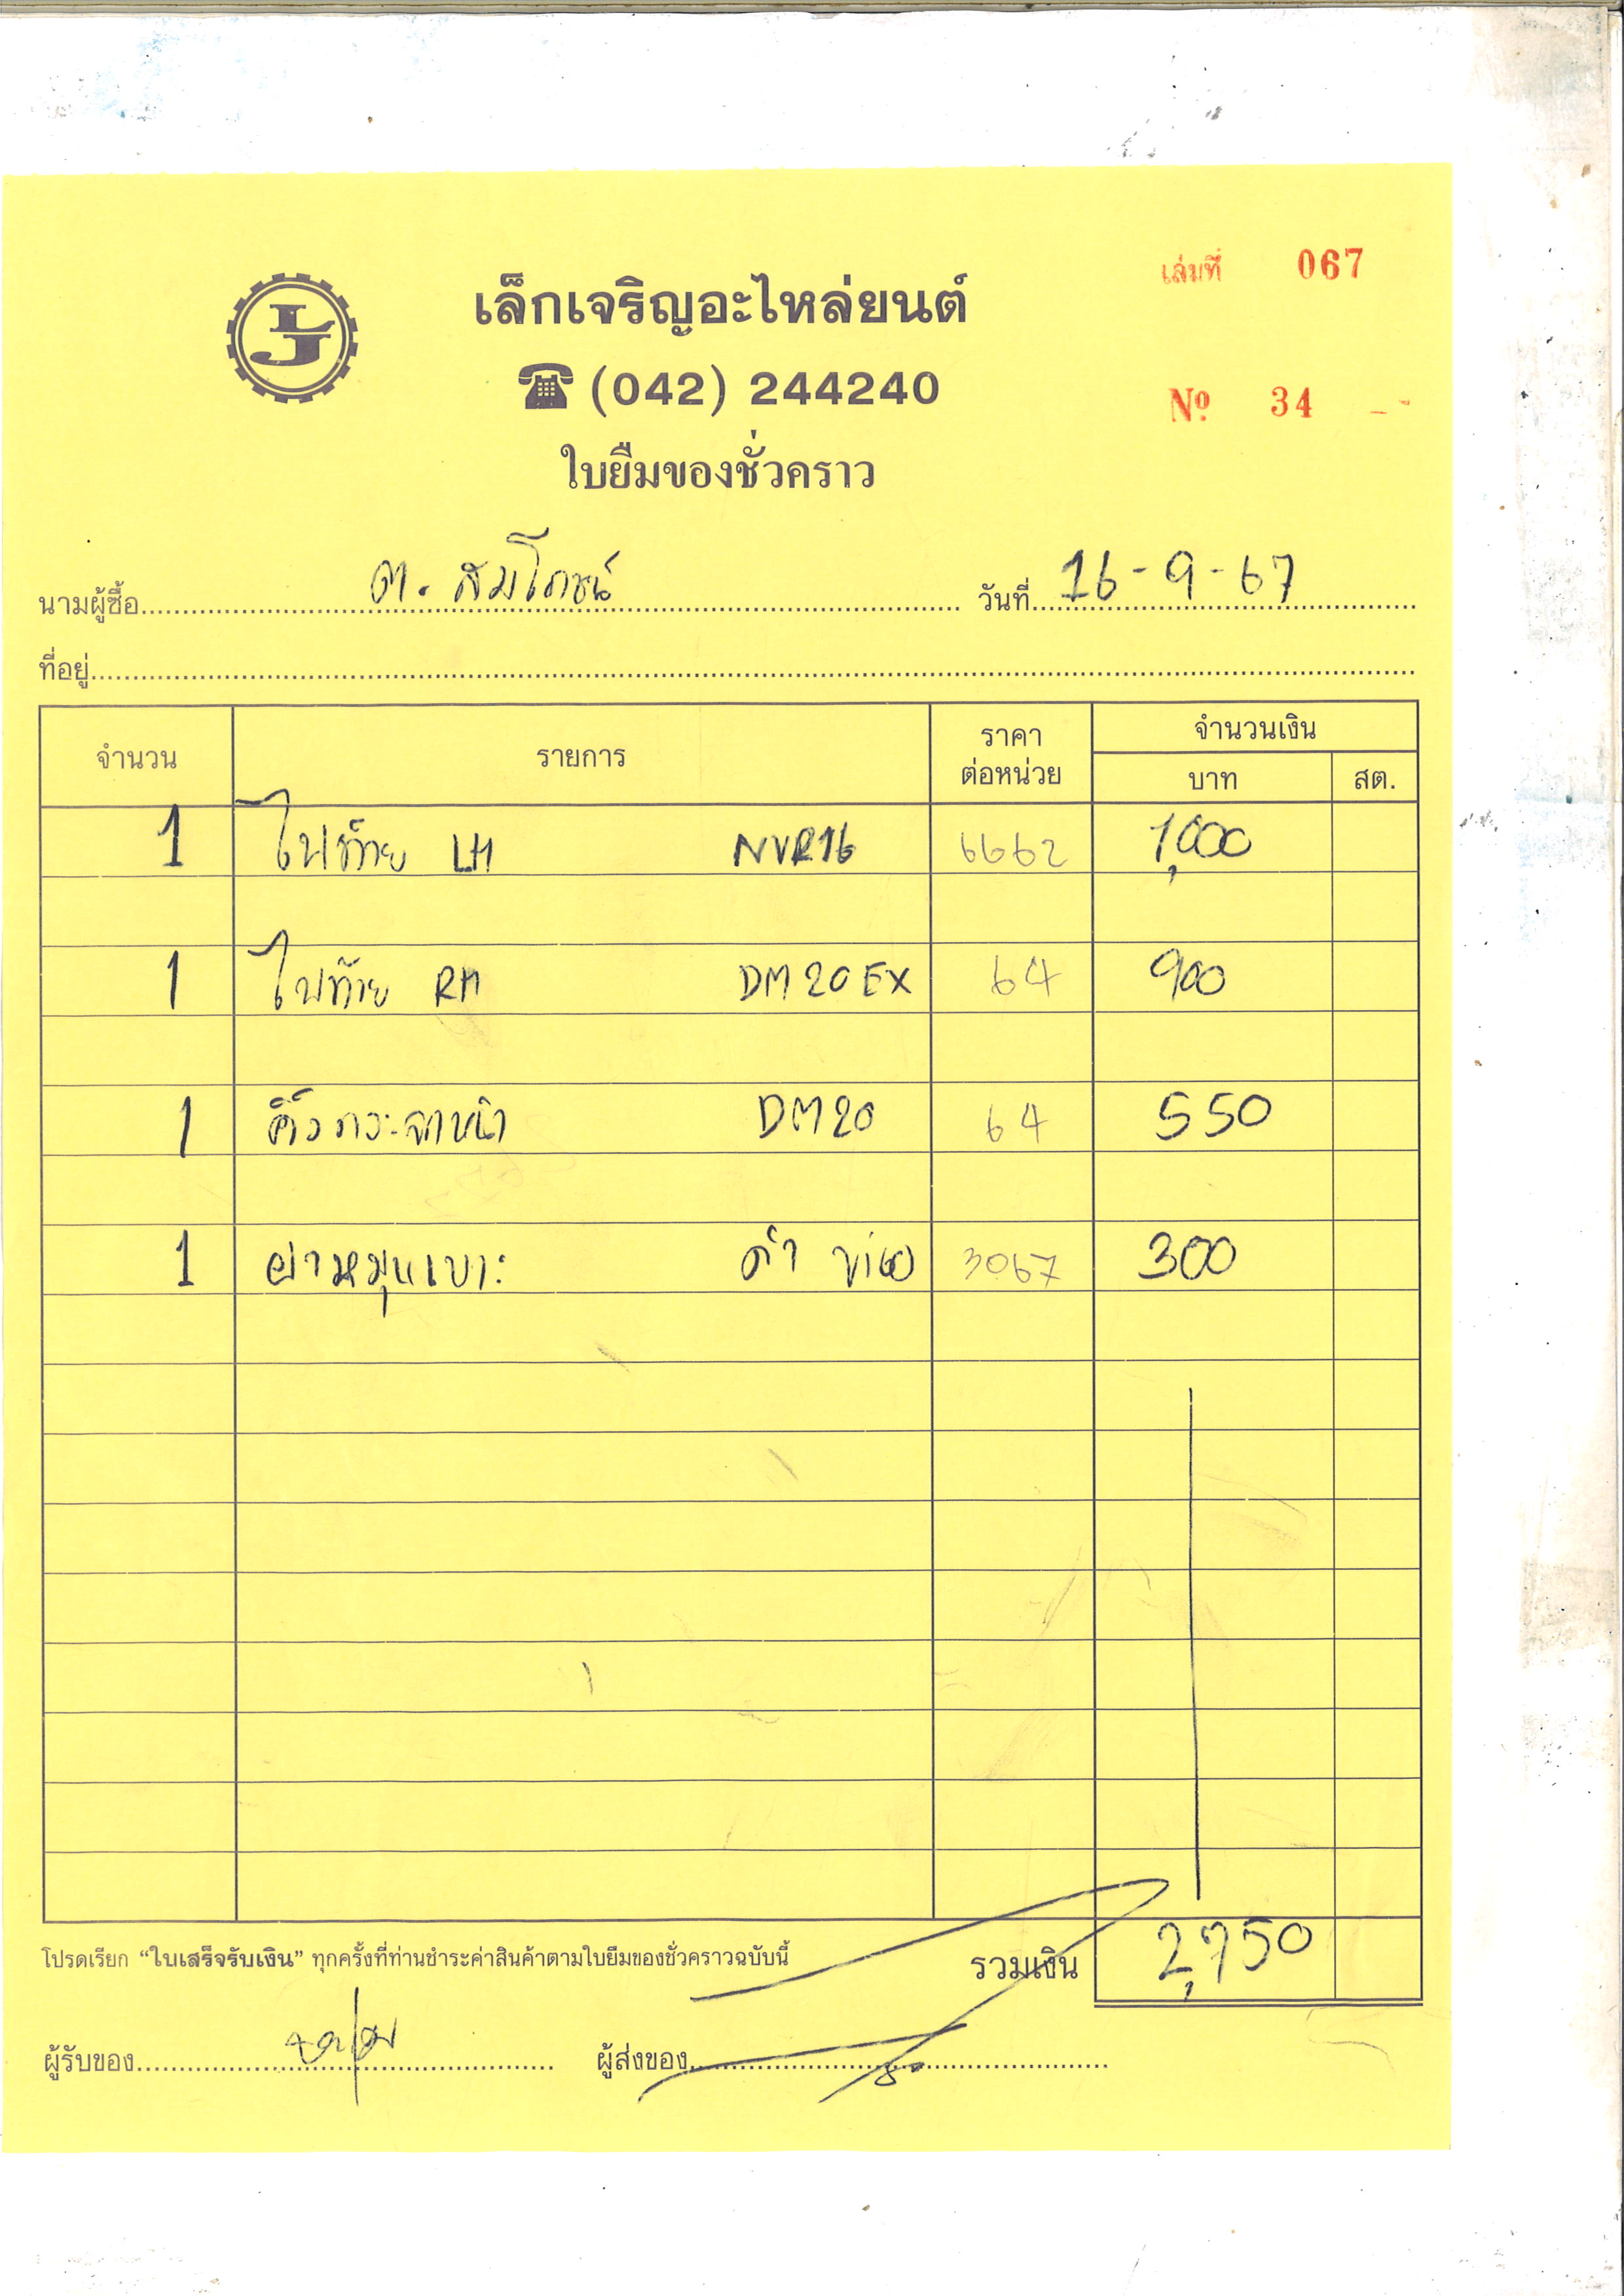 เล่มที่ 067
เล็กเจริญอะไหล่ยนต์
(042) 244240
Nº 34
ใบยืมของชั่วคราว
นามผู้ซื้อ ต. สมโภชน์ วันที่ 16-9-67
ที่อยู่
จำนวน รายการ ราคาต่อหน่วย จำนวนเงิน
บาท สต.
1 ไฟท้าย LH NVR16 6662 1,000
1 ไฟท้าย RH DM20EX 64 900
1 คิ้วกระจกหน้า DM20 64 550
1 ดำ 3067 300
โปรดเรียก “ใบเสร็จรับเงิน” ทุกครั้งที่ท่านชำระค่าสินค้าตามใบยืมของชั่วคราวฉบับนี้ รวมเงิน 2,750
ผู้รับของ ผู้ส่งของ